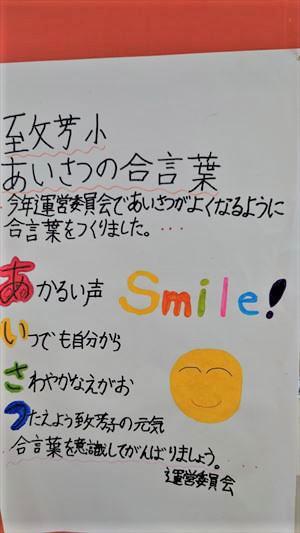 致芳小
あいさつの合言葉
今年運営委員会であいさつがよくなるように
合言葉をつくりました。・・・
あかるい声
Smile!
いつでも自分から
さわやかなえがお
つたえよう致芳子の元気
合言葉を意識してがんばりましょう。
運営委員会